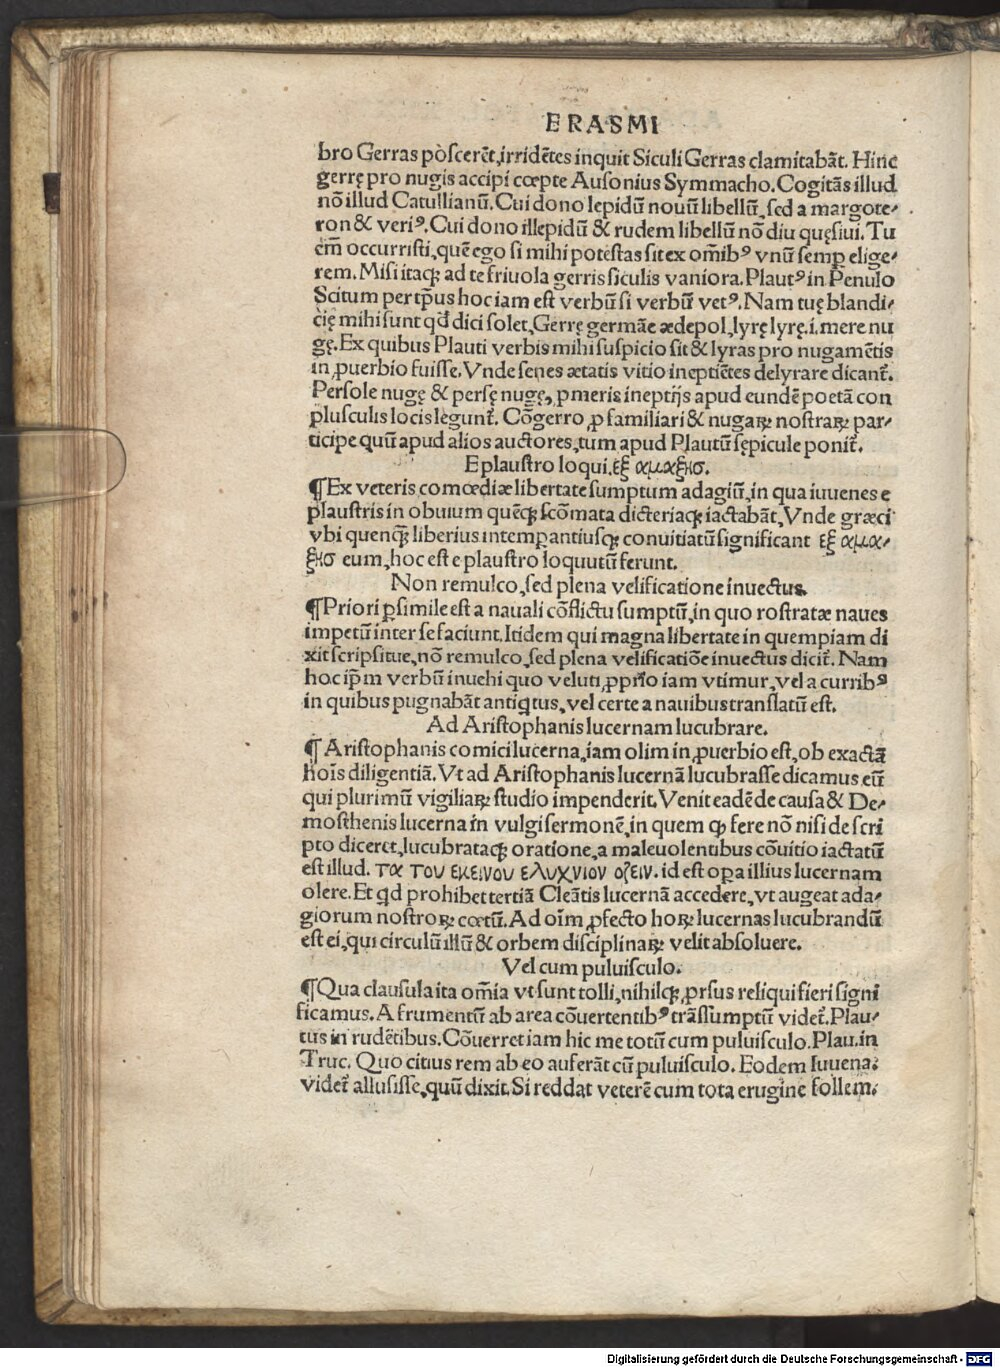 ERASMI
bro Gerras poſcerẽt,irridẽtes inquit Siculi Gerras clamitabãt. Hinc
gerrę pro nugis accipi cœpte Auſonius Symmacho. Cogitãs illud
nõ illud Catullianũ. Cui dono lepidũ nouũ libellũ, ſed a margote⸗
ron & veriꝰ. Cui dono illepidũ & rudem libellũ nõ diu quęſiui. Tu
em̃ occurriſti, quẽ ego ſi mihi poteſtas ſit ex om̃ibꝰ vnũ ſemp elige⸗
rem. Miſi itaqꝫ ad te friuola gerris ſiculis vaniora. Plautꝰ in Penulo
Scitum per tp̃us hoc iam eſt verbũ ſi verbũ vetꝰ. Nam tuę blandi⸗
cię mihi ſunt qd̃ dici ſolet, Gerrę germãe ædepol, lyrę lyrę.i. mere nu
gę. Ex quibus Plauti verbis mihi ſuſpicio ſit & lyras pro nugamẽtis
in ꝓuerbio fuiſſe. Vnde ſenes ætatis vitio ineptiẽtes delyrare dicant̃.
Perſole nugę & perſę nugę, ꝓ meris ineptijs apud eundẽ poetã con
pluſculis locis legunt̃. Cõgerro ꝓ familiari & nugaꝝ noſtraꝝ par⸗
ticipe quũ apud alios auctores, tum apud Plautũ ſępicule ponit̃.
E plauſtro loqui. εξ αμαξησ.
¶Ex veteris comœdiæ libertate ſumptum adagiũ, in qua iuuenes e
plauſtris in obuium quẽqꝫ ſcõmata dicteriaqꝫ iactabãt, Vnde græci
vbi quenqꝫ liberius intempantiuſqꝫ conuitiatũ ſignificant εξ αμα⸗
ξησ eum, hoc eſt e plauſtro loquutũ ferunt.
Non remulco, ſed plena velificatione inuectus.
¶Priori ꝑſimile eſt a nauali cõflictu ſumptũ, in quo roſtratæ naues
impetũ inter ſe faciunt. Itidem qui magna libertate in quempiam di
xit ſcripſitue, nõ remulco, ſed plena velificatiõe inuectus dicit̃. Nam
hoc ip̃m verbũ inuehi quo veluti ꝓprio iam vtimur, vel a curribꝰ
in quibus pugnabãt antiq̃tus, vel certe a nauibus tranſlatũ eſt.
Ad Ariſtophanis lucernam lucubrare.
¶ Ariſtophanis comici lucerna, iam olim in ꝓuerbio eſt, ob exactã
hoĩs diligentiã. Vt ad Ariſtophanis lucernã lucubraſſe dicamus eũ
qui plurimũ vigiliaꝝ ſtudio impenderit. Venit eadẽ de cauſa & De⸗
moſthenis lucerna in vulgi ſermonẽ, in quem ꝙ fere nõ niſi de ſcri
pto diceret, lucubrataqꝫ oratione, a maleuolentibus cõuitio iactatũ
eſt illud. τα του εκεινου ελυχνιον οζειν. id eſt oꝑa illius lucernam
olere. Et qd prohibet tertiã Cleãtis lucernã accedere, vt augeat ada⸗
giorum noſtroꝝ cœtũ. Ad oĩm ꝓfecto hoꝝ lucernas lucubrandũ
eſt ei, qui circulũ illũ & orbem diſciplinaꝝ velit abſoluere.
Vel cum puluiſculo.
¶Qua clauſula ita om̃ia vt ſunt tolli, nihilqꝫ ꝓrſus reliqui fieri ſigni
ficamus. A frumentũ ab area cõuertentibꝰ trãſſumptũ videt̃. Plau⸗
tus in rudẽtibus. Cõuerret iam hic me totũ cum puluiſculo. Plau. in
Truc. Quo citius rem ab eo auferãt cũ puluiſculo. Eodem Iuuena⸗
videt̃ alluſiſſe, quũ dixit. Si reddat veterẽ cum tota erugine follem.
Digitalisierung gefördert durch die Deutsche Forschungsgemeinschaft - DFG